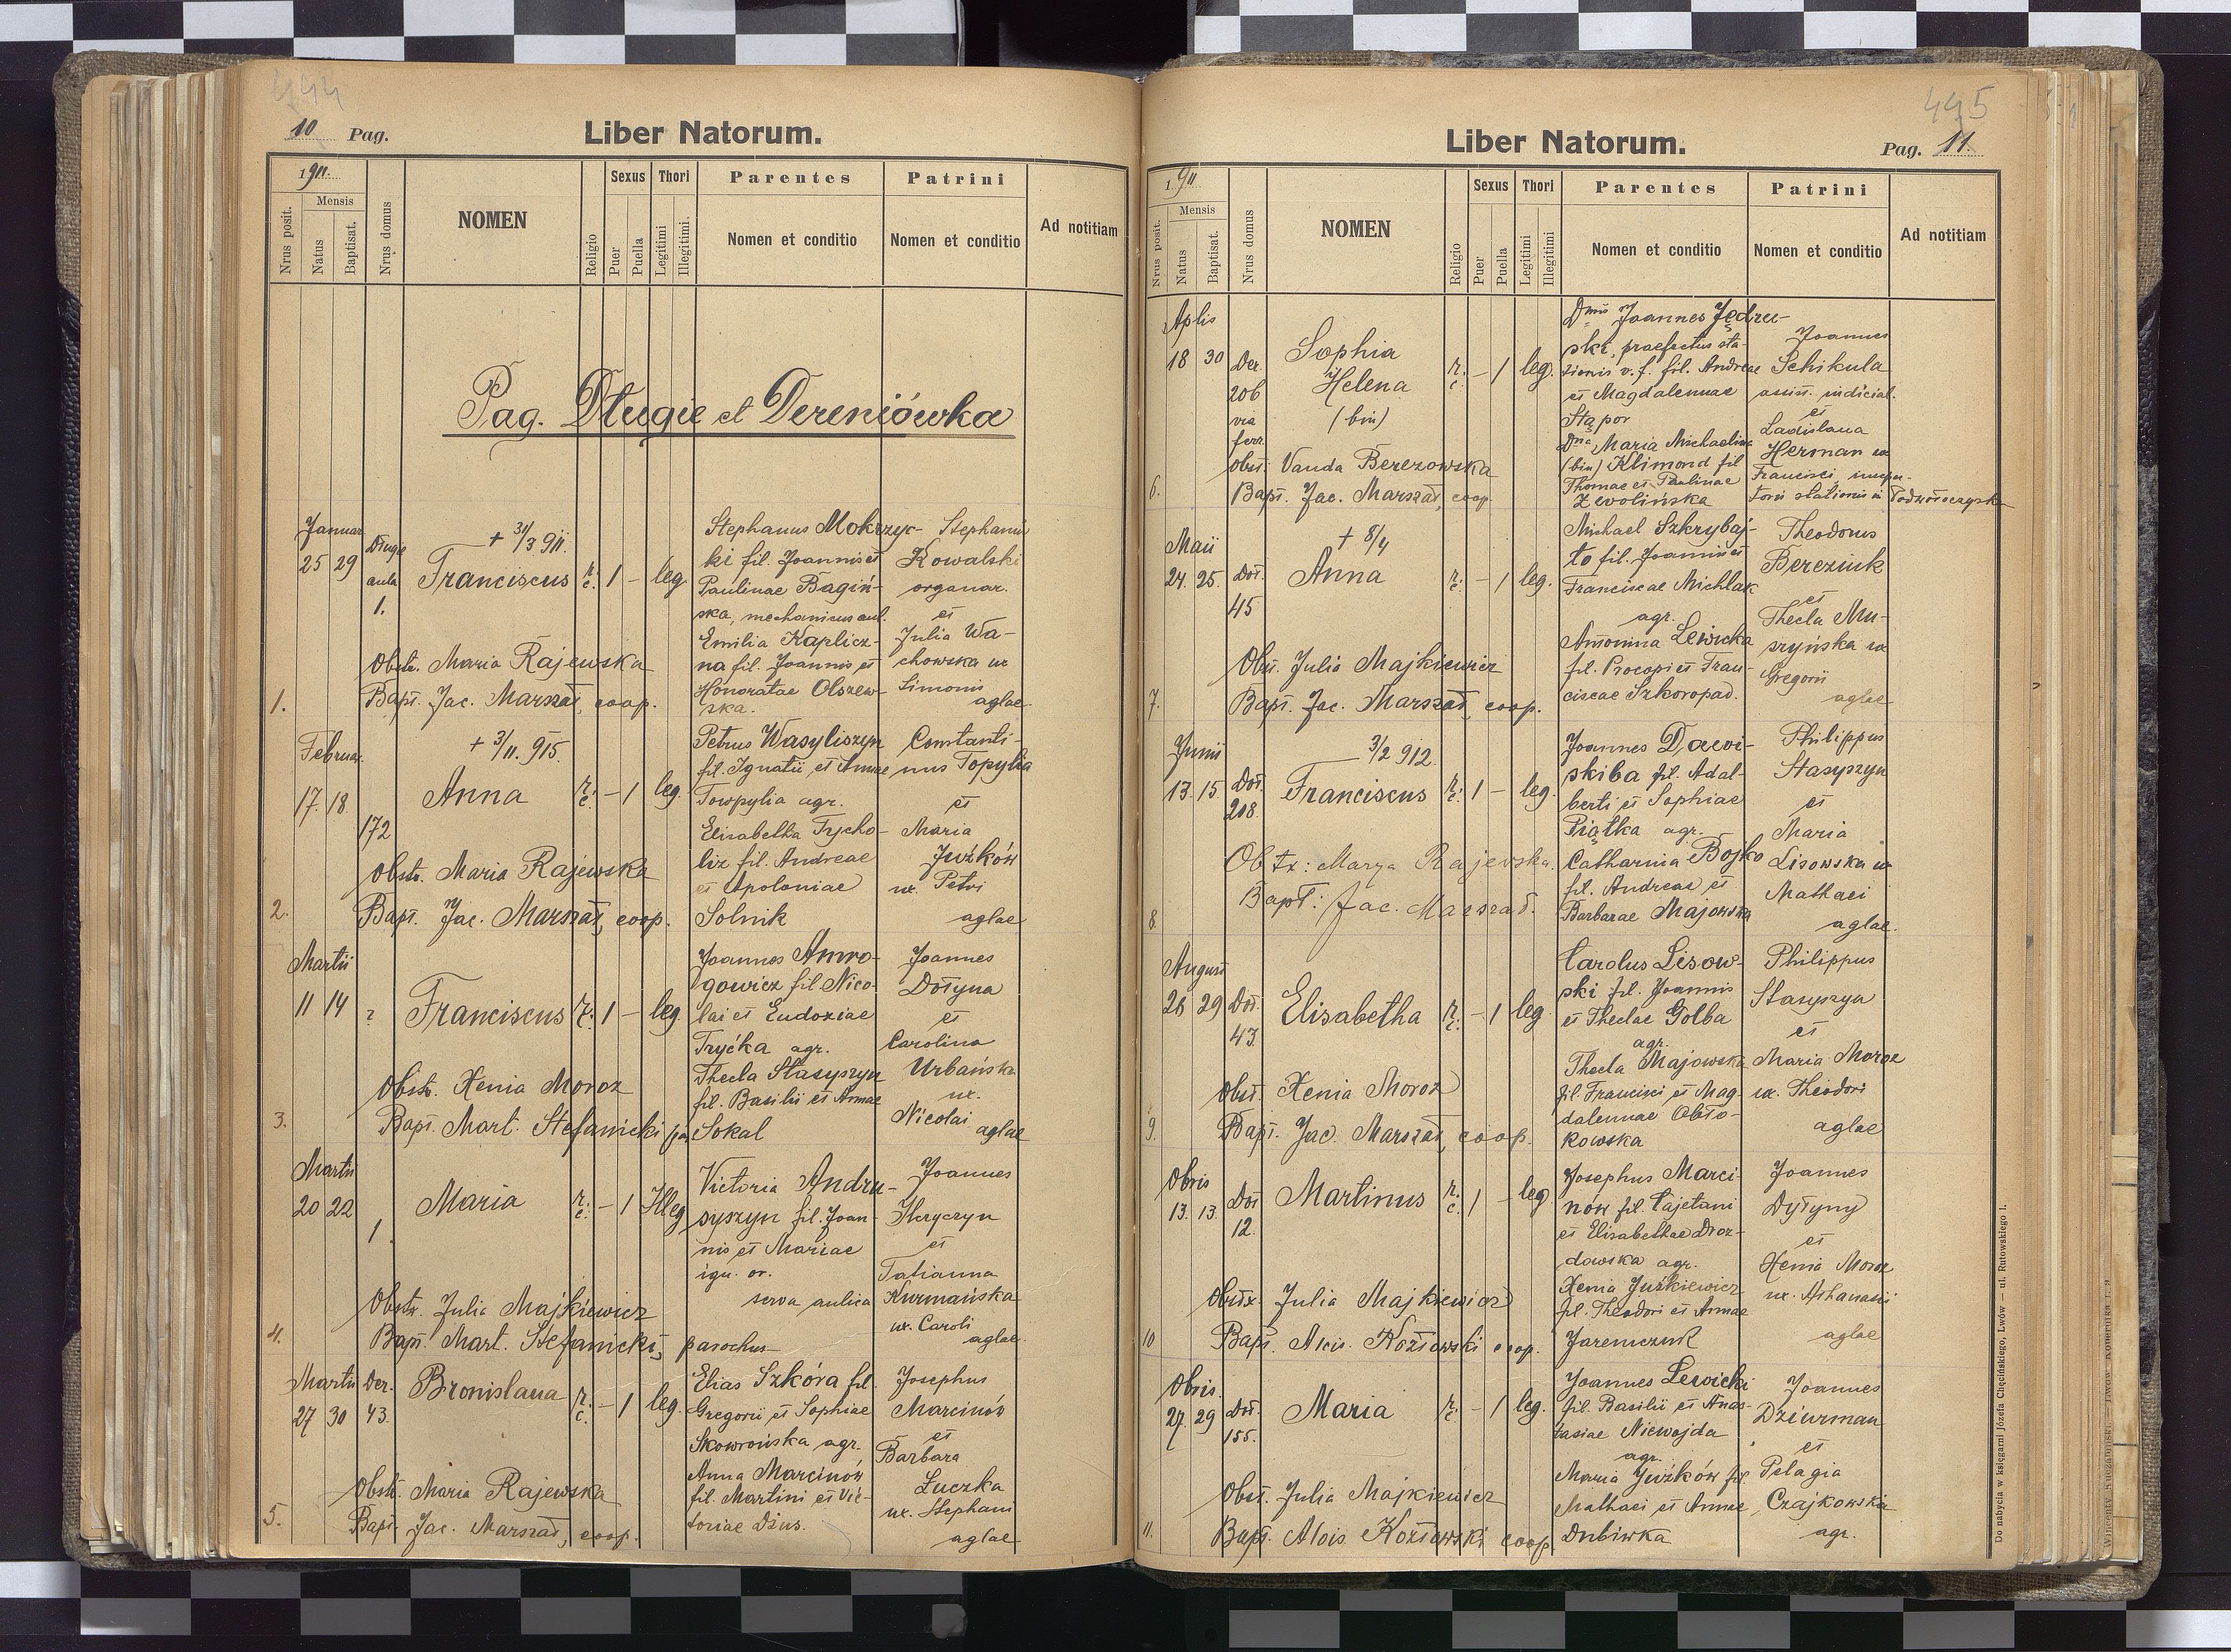 444
10 Pag.
Liber Natorum.
1911.
Nrus posit.
Mensis
Natus
Baptisat.
Nrus domus
NOMEN
Religio
Sexus
Puer
Puella
Thori
Legitimi
Illegitimi.
Parentes
Nomen et conditio
Patrini
Nomen et conditio
Ad notitiam
Pag. Długie et Dereniówka
Januar
25 29
Długie
aula
1.
+ 31/3 911.
Franciscus
r. c. 1 – leg
Stephanus Mokrzyc-
ki fil. Joannis et
Paulinae Bagiń-
ska, mechanicus aul.
Emilia Kaplicz-
na fil. Joannis et
Honoratae Olszew-
ska.
Stephanus
Kowalski
organar.
et
Julia Wa-
chowska ux
Simonis
aglae
Obstr. Maria Rajewska
1. Bapt. Jac. Marszał, coop.
Februar.
17. 18.
172
+ 3/11. 915.
Anna
r. c. – 1 leg.
Petrus Wasyliszyn
fil. Ignatii et Annae
Towpylia agr.
Elisabetha Trycho-
liz fil. Andreae
et Apoloniae
Solnik
Constanti-
nus Topylia
et
Maria
Juźków
ux. Petri
aglae
Obstr. Maria Rajewska
2. Bapt. Jac. Marszał, coop.
Martii
11 14 ?
Franciscus
r. c. 1 – leg.
Joannes Amro-
gowicz fil. Nico-
lai et Eudoxiae
Tryćka agr.
Thecla Stasyszyn
fil. Basilii et Annae
Sokal
Joannes
Dołyna
et
Carolina
Urbańska
ux.
Nicolai
aglae
Obstr. Xenia Moroz
3. Bapt. Mart. Stefanicki par
Martii
20 22
1
Maria
r. c. – 1 Illeg
Victoria Andru-
syszyn fil. Joan-
nis et Mariae
ign. or.
serva aulica
Joannes
Hryczyn
et
Tatianna
Kurmańska
ux. Caroli
aglae.
Obstr. Julia Majkiewicz
4. Bapt. Mart. Stefanicki, parochus
Martii Der.
27 30 43.
Bronislaua
r. c. – 1 leg.
Elias Szkóra fil.
Gregorii et Sophiae
Skowrońska agr.
Anna Marcinów
fil. Martini et Vic-
toriae Dżus.
Josephus
Marcinów
et
Barbara
Łuczka
ux. Stephani
aglae
Obstr. Maria Rajewska
5. Bapt. Jac. Marszał, coop.
445
Liber Natorum.
Pag. 11.
1911
Nrus posit.
Mensis
Natus
Baptisat.
Nrus domus
NOMEN
Religio
Sexus
Puer
Puella
Thori
Legitimi
Illegitimi
Parentes
Nomen et conditio
Patrini
Nomen et conditio
Ad notitiam
Aplis
18 30 Der.
206
via
ferr.
Sophia
Helena
(bin)
r. c. – 1 leg.
Dnus Joannes Jędrze-
ski, praefectus sta-
tionis v. f. fil. Andreae
et Magdalennae
Stąpor
Dna Maria Michaelina
(bin) Klimond fil
Thomae et Paulinae
Zwolińska
Joannes
Schikula
assist. iudicial.
et
Ladislaua
Herman ux
Francisci,
stationis in Podwołoczyska
Obst. Vanda Berezowska
6. Bapt. Jac. Marszał, coop.
Maii
24. 25. Doł.
45
+ 8/4
Anna
r. c. – 1 leg.
Michael Szkrybaj-
to fil. Joannis et
Franciscae Michlak
agr.
Antonina Lewicka
fil. Procopi et Fran-
ciscae Szkoropad.
Theodorus
Bereziuk
et
Thecla Mu-
szyńska ux
Gregorii
aglae
Obst. Julia Majkiewicz
7. Bapt. Jac. Marszał, coop.
Junii
13. 15. Doł.
208.
3/2 912.
Franciscus
r. c. 1 – leg.
Joannes Dawi-
skiba fil. Adal-
berti et Sophiae
Piątka agr.
Catharina Bojko
fil. Andreae et
Barbarae Majowska
Philippus
Stasyszyn
et
Maria
Lisowska ux
Mathaei
aglae.
Obtx: Marya Rajewska.
8. Bapt: Jac. Marszał.
August
26 29 Doł.
43.
Elisabetha
r. c. – 1 leg
Carolus Lisow-
ski fil. Joannis
et Theclae Golba
agr.
Thecla Majowska
fil. Francisci et Mag-
dalennae Obło-
kowska
Philippus
Stasyszyn
et
Maria Moroz
ux. Theodori
aglae
Obst. Xenia Moroz
9. Bapt. Jac. Marszał, coop.
Obris
13. 13. Doł
12.
Martinus
r. c. 1 – leg
Josephus Marci-
nów fil. Cajetani
et Elisabethae Droz-
dowska agr.
Xenia Juśkiewicz
fil. Theodori et Annae
Jaremczuk
Joannes
Dytyny
et
Xenia Moroz
ux. Athanasii
aglae
Obstx. Julia Majkiewicz
10 Bapt. Alois. Kozłowski coop.
Obris.
27. 29 Doł.
155.
Maria
r. c. – 1 leg.
Joannes Lewicki
fil. Basilii et Anas-
tasiae Niewojda
agr.
Maria Juźków fil
Mathaei et Annae
Dubiwka
Joannes
Dziurman
et
Pelagia
Czajkowska
agr.
Obst. Julia Majkiewicz
11. Bapt. Alois Kozłowski coop
Do nabycia w księgarni Józefa Chęcińskiego, Lwów — ul. Rutowskiego 1.